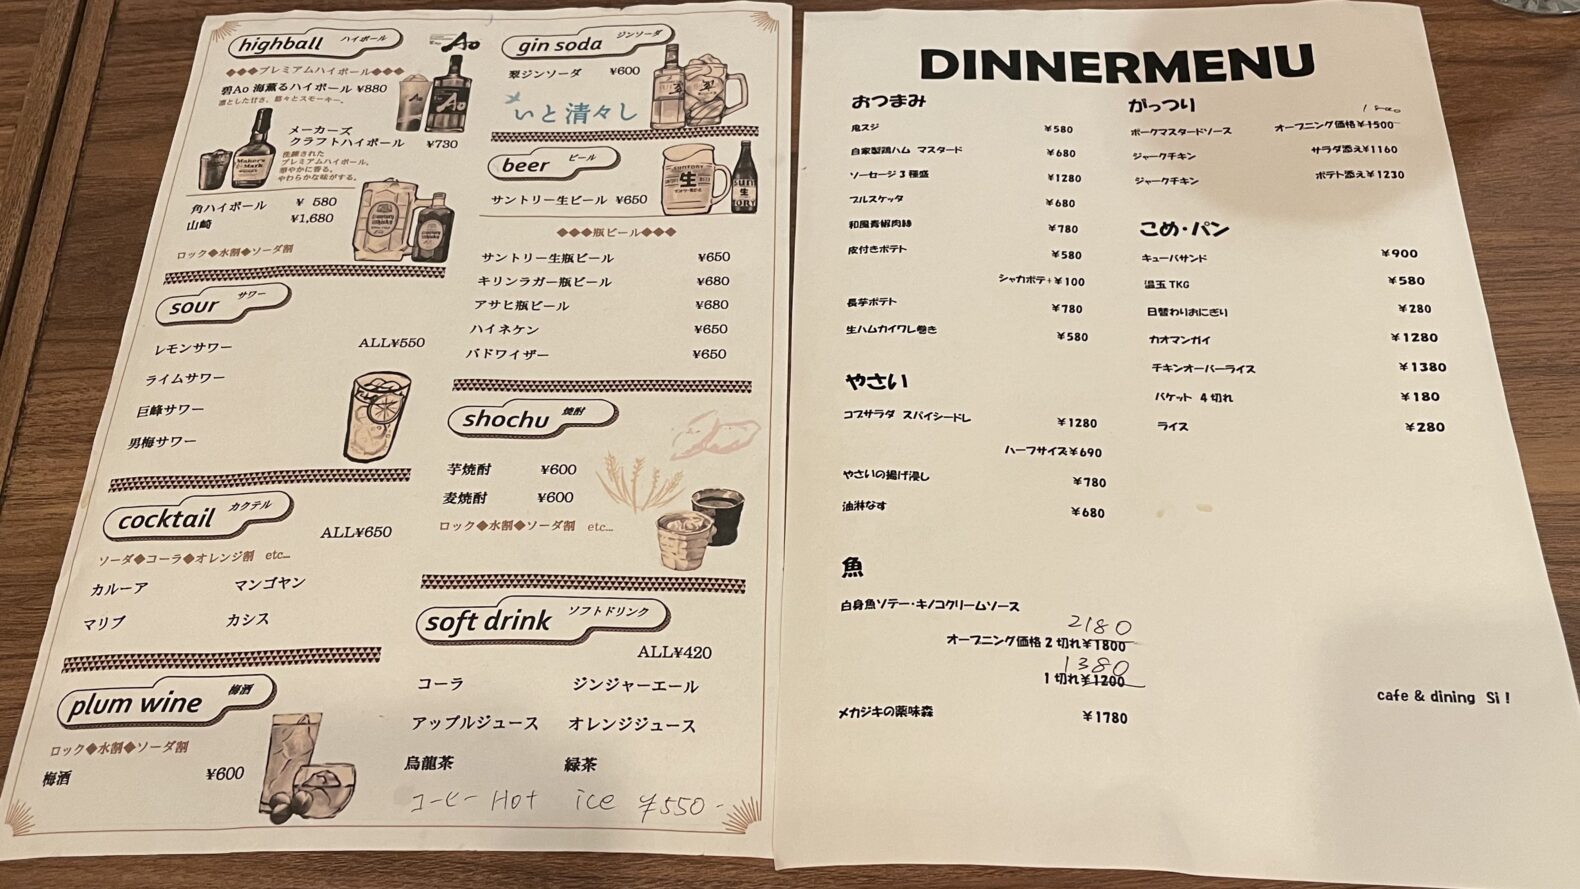 highball ハイボール
Ao
◆◆◆プレミアムハイボール◆◆◆
碧Ao 海薫るハイボール ¥880
凛とした甘さ、悠々とスモーキー。
メーカーズ
クラフトハイボール ¥730
洗練された
プレミアムハイボール。
華やかに香る。
やわらかな味がする。
Maker's
Mark
角ハイボール ¥ 580
山崎 ¥1,680
ロック◆水割◆ソーダ割
sour サワー
ALL¥550
レモンサワー
ライムサワー
巨峰サワー
男梅サワー
cocktail カクテル
ALL¥650
ソーダ◆コーラ◆オレンジ割 etc...
カルーア マンゴヤン
マリブ カシス
plum wine 梅酒
ロック◆水割◆ソーダ割
梅酒 ¥600
gin soda ジンソーダ
翠ジンソーダ ¥600
翠
いと清々し
beer ビール
サントリー生ビール ¥650
SUNTORY
生
◆◆◆瓶ビール◆◆◆
サントリー生瓶ビール ¥650
キリンラガー瓶ビール ¥680
アサヒ瓶ビール ¥680
ハイネケン ¥650
バドワイザー ¥650
shochu 焼酎
芋焼酎 ¥600
麦焼酎 ¥600
ロック◆水割◆ソーダ割 etc...
soft drink ソフトドリンク
ALL¥420
コーラ ジンジャーエール
アップルジュース オレンジジュース
烏龍茶 緑茶
コーヒー Hot ice ¥550-
DINNERMENU
おつまみ
鬼スジ ¥580
自家製鶏ハム マスタード ¥680
ソーセージ3種盛 ¥1280
ブルスケッタ ¥680
和風青椒肉絲 ¥780
皮付きポテト ¥580
シャカポテ+¥100
長芋ポテト ¥780
生ハムカイワレ巻き ¥580
やさい
コブサラダ スパイシードレ ¥1280
ハーフサイズ¥690
やさいの揚げ浸し ¥780
油淋なす ¥680
魚
白身魚ソテー・キノコクリームソース
2180
オープニング価格2切れ¥1800
1380
1切れ¥1200
メカジキの薬味森 ¥1780
がっつり
ポークマスタードソース オープニング価格¥1500
ジャークチキン サラダ添え¥1160
ジャークチキン ポテト添え¥1230
こめ・パン
キューバサンド ¥900
温玉TKG ¥580
日替わりおにぎり ¥280
カオマンガイ ¥1280
チキンオーバーライス ¥1380
バケット 4切れ ¥180
ライス ¥280
cafe & dining Si!